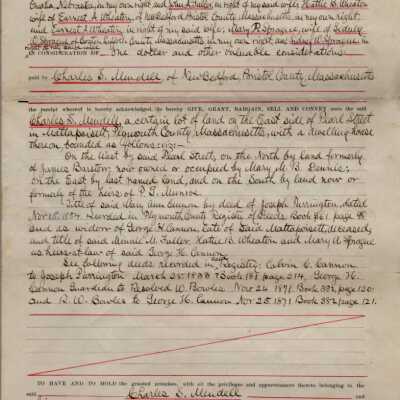 Omaha Nebraska, in my own right and John A. Fuller, in right of my said wife, Hattie B. Wheaton,
wife of Earnest A. Wheaton, of New Bedford Bristol County, Massachusetts, in my own right,
and Earnest A. Wheaton, in right of my said wife, Mary R. Sprague, wife of Sidney
W. Sprague of County, Massachusetts in my own right, and Sidney W. Sprague, in
right of my said wife
IN CONSIDERATION OF One dollar and other valuable considerations
paid by Charles S. Mendell of New Bedford, Bristol County, Massachusetts
the receipt whereof is hereby acknowledged, do hereby GIVE, GRANT, BARGAIN, SELL AND CONVEY unto the said
Charles S. Mendell, a certain lot of land on the East side of Pearl Street
in Mattapoisett, Plymouth County, Massachusetts, with a dwelling house
thereon bounded as follows, viz:-
On the West by said Pearl Street, on the North by land formerly
of James Barstow, now owned or occupied by Mary M. B. Dennis;
on the East by last named land, and on the South by land now or
formerly of the heirs of P. G. Munroe.
Title of said Mary Ann Cannon by deed of Joseph Purrington, dated
Nov. 18 Recorded in Plymouth County Registry of Deeds Book page
and as widow of George H. Cannon, late of said Mattapoisett, deceased,
and title of said Minnie M. Fuller, Hattie B. Wheaton and Mary R. Sprague
as heirs-at-law of said George H. Cannon.
See following deeds recorded in said Registry: Calvin C. Cannon
to Joseph Purrington March 25 1838 Book 188 page 214. George H.
Cannon Guardian to Resolved W. Bowles Nov. 24 1871 Book 382, page 120
and R. W. Bowles to George H. Cannon Nov. 25 1871 Book 382, page 121.
TO HAVE AND TO HOLD the granted premises, with all the privileges and appurtenances thereto belonging to the
said Charles S. Mendell and